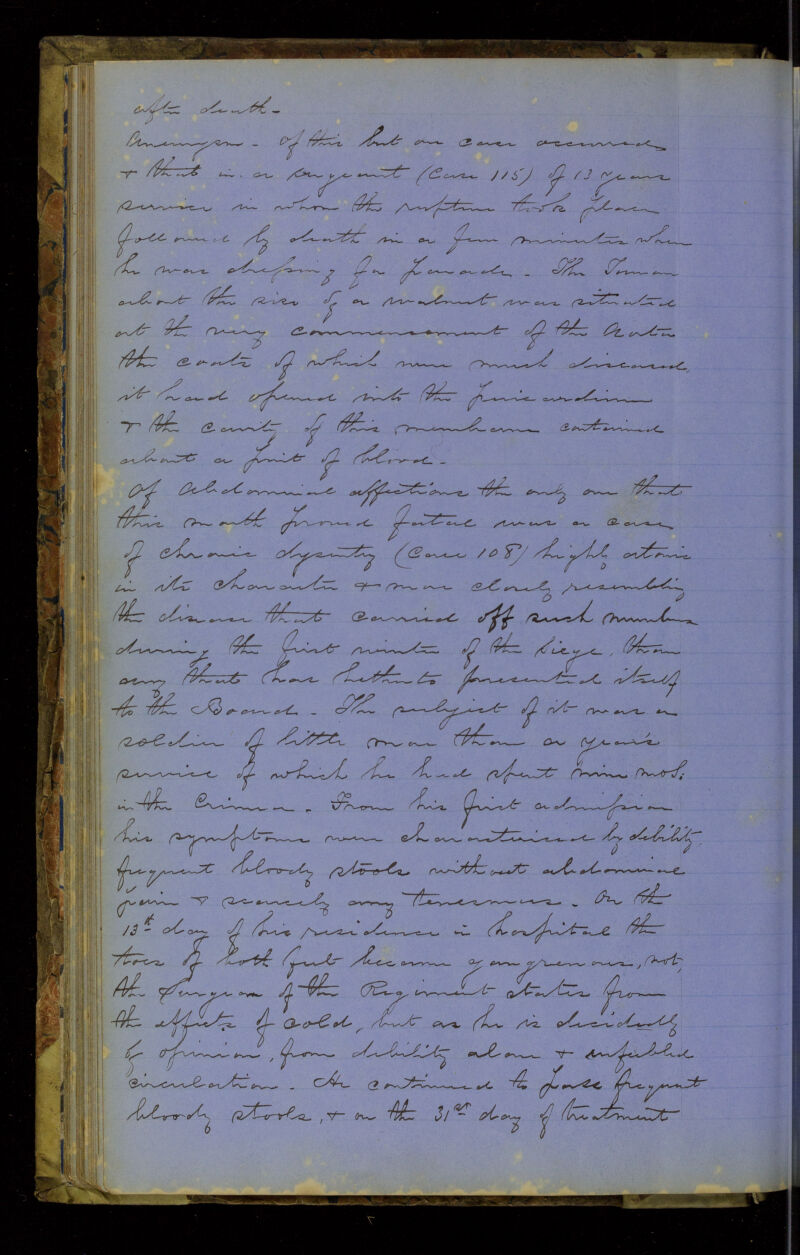 after death -
Aneurysm - of this but one case occurred
& that in a sergeant (Case 115) of 13 years
service in whom the rupture took place
followed by death in a few minutes when
he was dressing for parade - The Tumour
about the size of a walnut was situated
at the very commencement of the Aorta
the coats of which were much diseased,
it had opened into the pericardium
& the cavity of this membrane contained
about a pint of blood -
Of Abdominal affections the only one that
this month proved fatal was a case
of chronic dysentry (Case 108) highly atonic
in its character & more closely resembling
the disease that carried off such numbers
during the first winter of the Siege, than
any that has hitherto presented itself
to the Board - The subject of it was a
soldier of little more than a year's
service of which he had spent nine mos.
in the Crimea. From his first admission
his symptoms were characterised by debility,
frequent bloody stools without abdominal
pain & scarcely any tenesmus. On the
13th day of his residence in hospital the
toes of both feet became gangrenous, not,
the Surgeon of the Regiment states from
the effects of cold, but as he is decidedly
of opinion, from debility alone & enfeebled
circulation. He continued to pass frequent
bloody stools, & on the 31st day of treatment